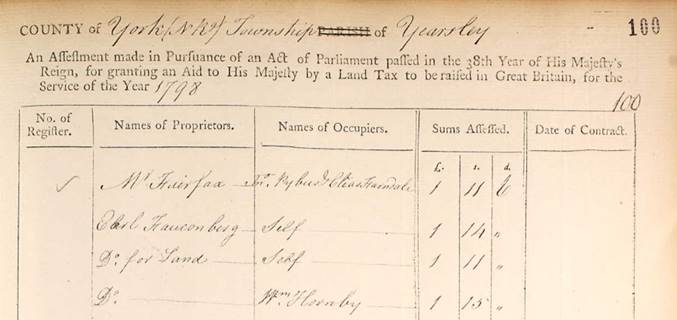 COUNTY of York (N Rg) Township PARISH of Yearsley 100
An Assessment made in Pursuance of an Act of Parliament passed in the 38th Year of His Majesty's
Reign, for granting an Aid to His Majesty by a Land Tax to be raised in Great Britain, for the
Service of the Year 1798
100
No. of Register. Names of Proprietors. Names of Occupiers. Sums Assessed. Date of Contract.
£. s. d.
Mr Fairfax Pybus & Elias Farndale 1 11 6
Earl Fauconberg Self 1 14 "
Do. for Land Self 1 11 "
Do. Wm Hornby 1 15 "